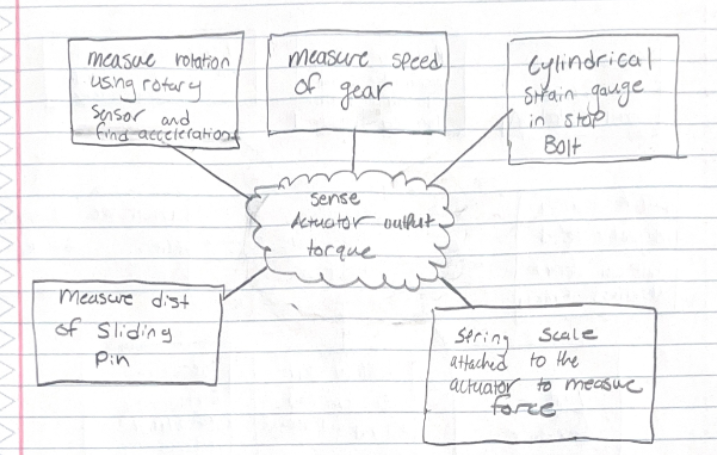 measure rotation
using rotary
sensor and
find acceleration
measure speed
of gear
cylindrical
strain gauge
in stop
Bolt
sense
Actuator output
torque
Measure dist
of Sliding
Pin
Spring Scale
attached to the
actuator to measure
force